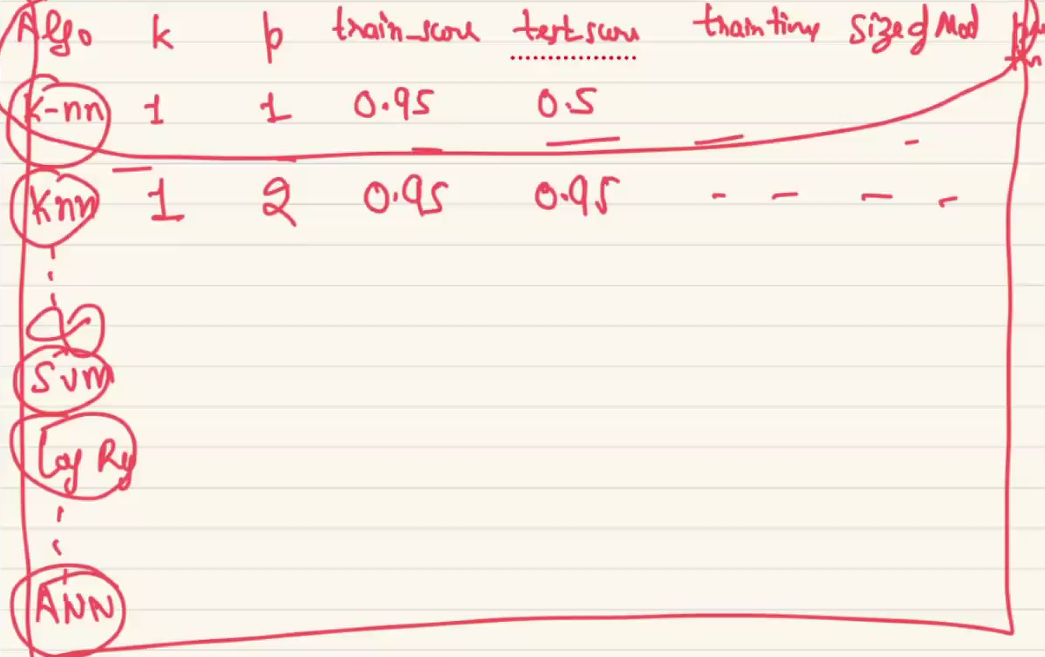 Algo k p train_score test score train time Size of Mod
K-nn 1 1 0.95 0.5
Knn 1 2 0.95 0.95 - - - -
SVM
Log Reg
ANN